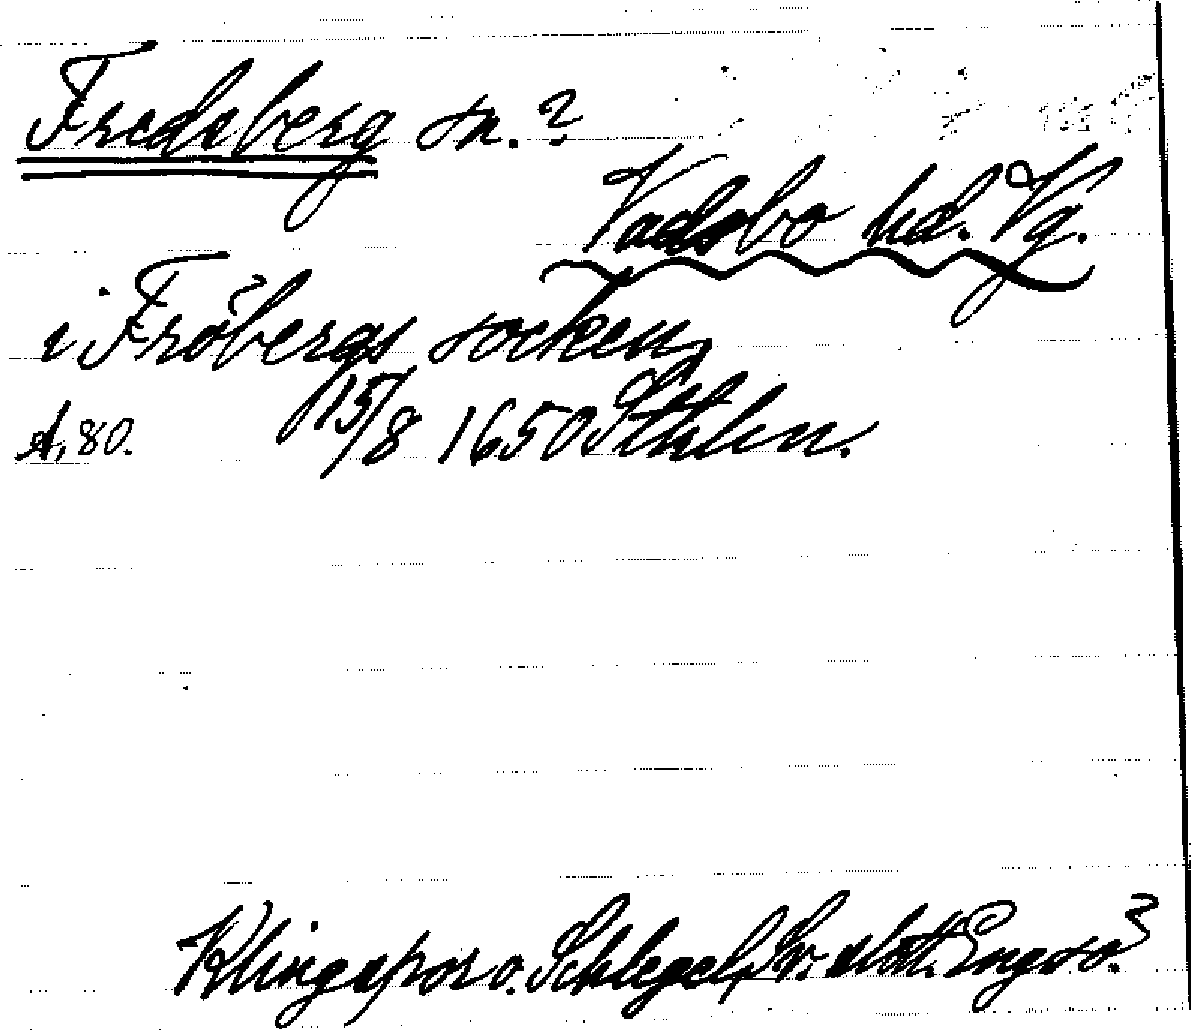 Fredsberg sn.?
Vadsbo hd. Vg.
i Fröbergs socken,
A, 80. 15/8 1650 Sthlm.
Klingspor o. Schlegel, Sv. slott. Engsö.